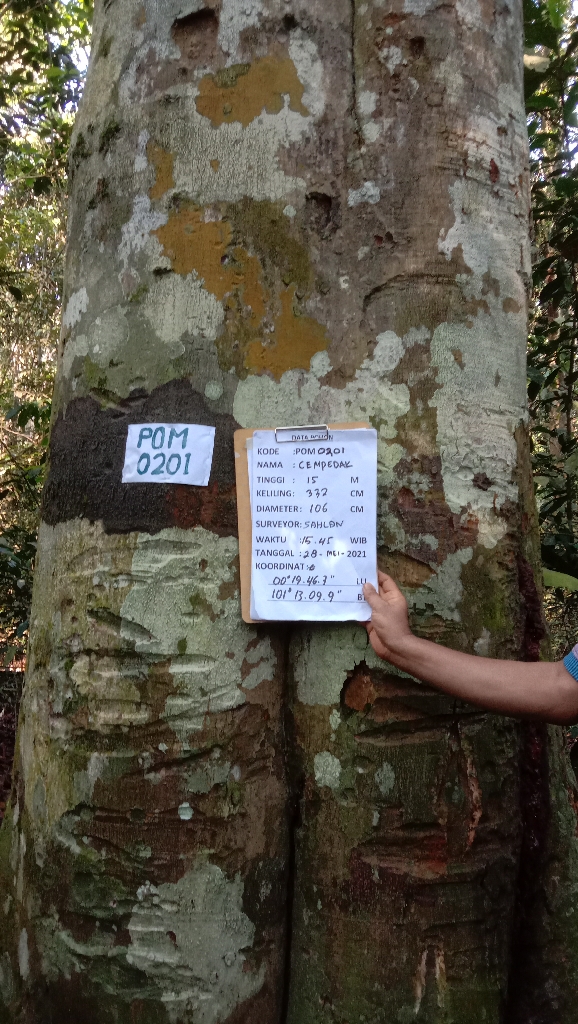 POM
0201
DATA POHON
KODE : POM 0201
NAMA : CEMPEDAK
TINGGI : 15 M
KELILING : 332 CM
DIAMETER : 106 CM
SURVEYOR : SAHLAN
WAKTU : 15.45 WIB
TANGGAL : 28 - MEI - 2021
KOORDINAT :
00° 19.46.3" LU
101° 13.09.9" B